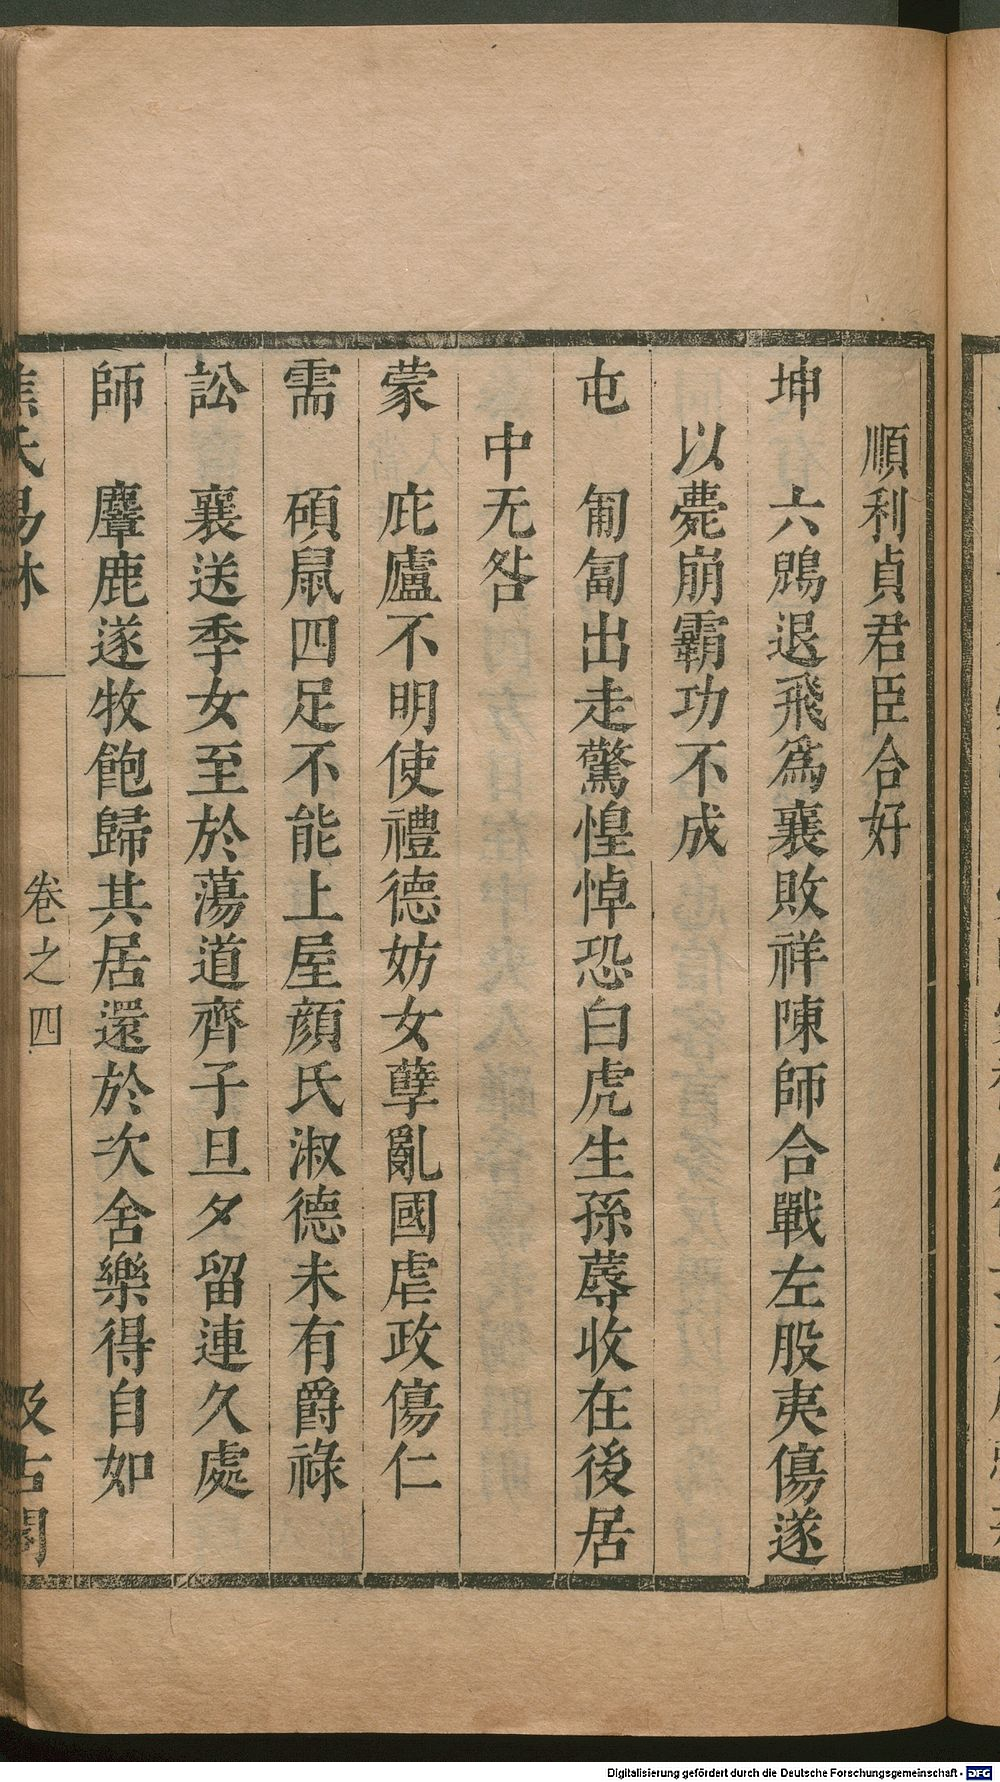 順利貞君臣合好
坤 六鶂退飛爲襄敗祥陳師合戰左股夷傷遂
以薨崩霸功不成
屯 匍匐出走驚惶悼恐白虎生孫蓐收在後居
中无咎
蒙 庇廬不明使禮德妨女孽亂國虐政傷仁
需 碩鼠四足不能上屋顔氏淑德未有爵祿
訟 襄送季女至於蕩道齊子旦夕留連久處
師 麞鹿遂牧飽歸其居還於次舍樂得自如
焦氏易林 卷之四 汲古閣
Digitalisierung gefördert durch die Deutsche Forschungsgemeinschaft - DFG